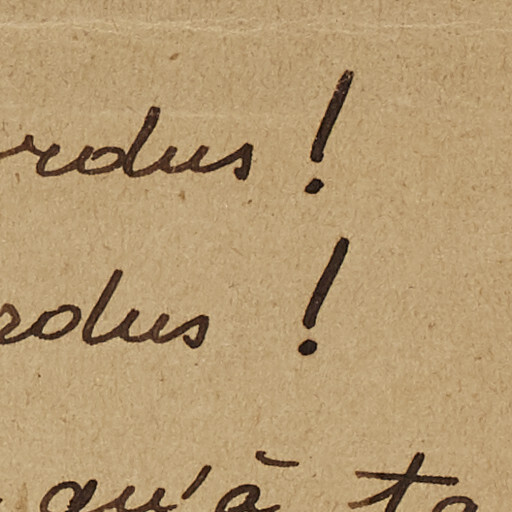 rdus !
rdus !
qu'à ta